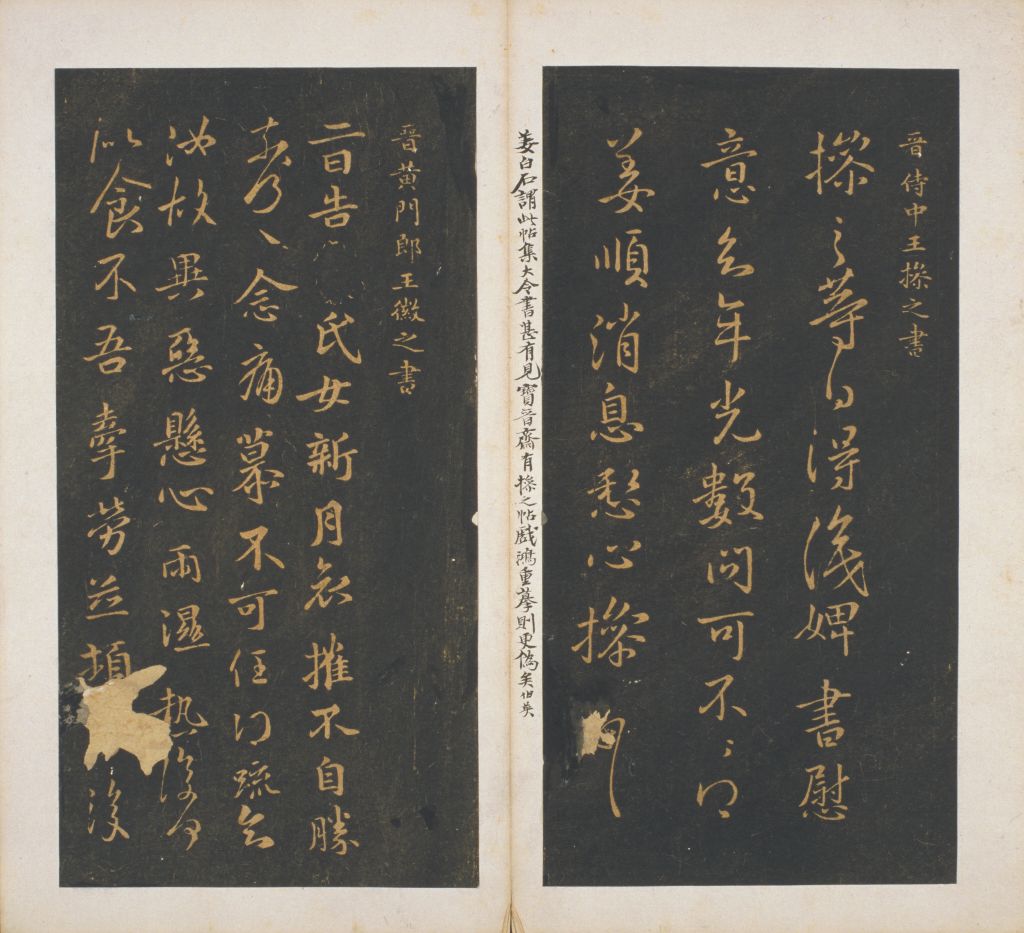 晉侍中王操之書
操之等白得識婢書慰
意云年光數問可不〻
姜順消息愁心操
姜白石謂此帖集大令書甚有見寶晉齋有操之帖戲鴻重摹則更偽矣伯英
晉黃門郎王徽之書
二日告氏女新月哀摧不自勝
奈何〻念痛慕不可任得疏知
汝故異惡懸心雨濕熱復何
似食不吾牽勞並頓復